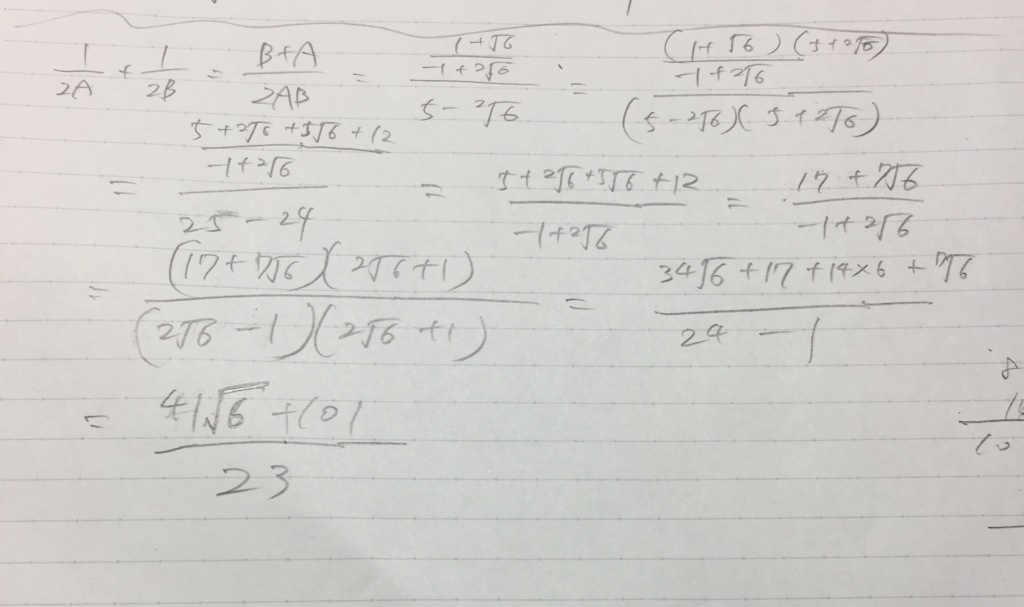 1/2A + 1/2B = B+A/2AB = ((1+√6)/(-1+2√6))/(5-2√6) = ((1+√6)(5+2√6)/(-1+2√6))/((5-2√6)(5+2√6))
= ((5+2√6+5√6+12)/(-1+2√6))/(25-24) = (5+2√6+5√6+12)/(-1+2√6) = (17+7√6)/(-1+2√6)
= (17+7√6)(2√6+1)/(2√6-1)(2√6+1) = (34√6+17+14×6+7√6)/(24-1)
= (41√6+101)/23